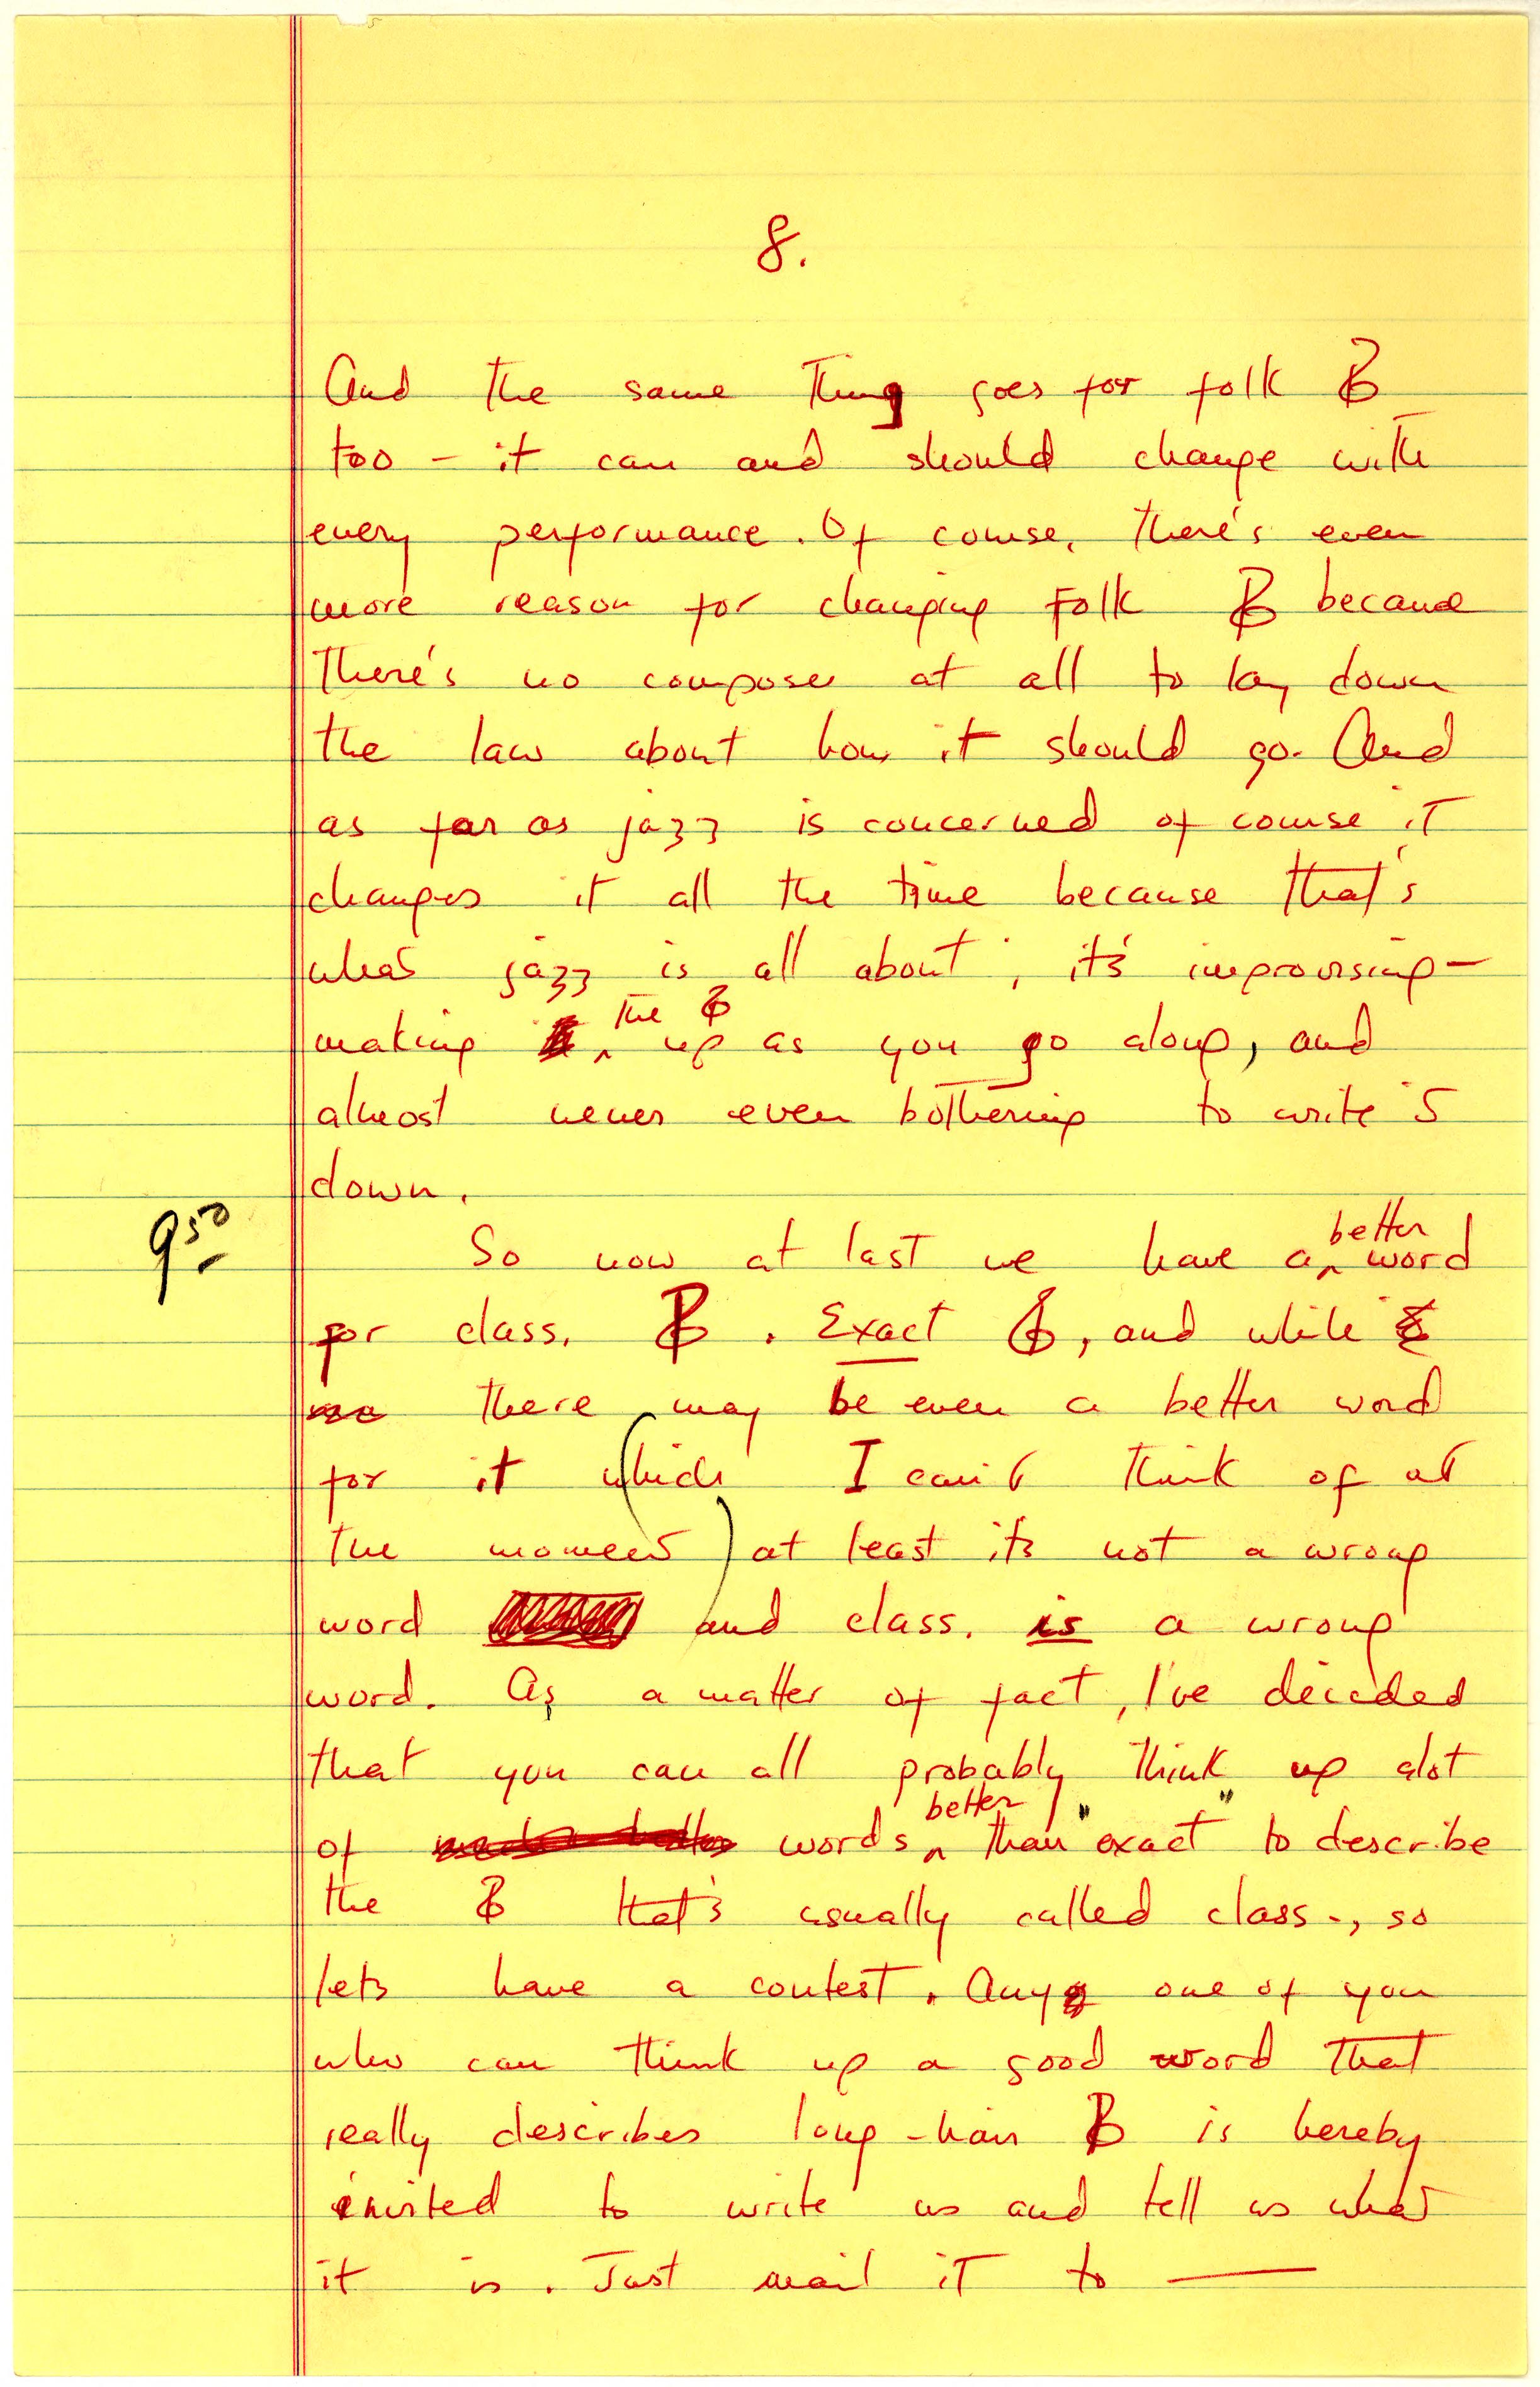 8.
And the same thing goes for folk 𝄡
too – it can and should change with
every performance. Of course, there's even
more reason for changing folk 𝄡 because
there's no composer at all to lay down
the law about how it should go. And
as far as jazz is concerned of course it
changes it all the time because that's
what jazz is all about; it's improvising –
making the 𝄡 up as you go along, and
almost never even bothering to write it
down.
9 50
So now at last we have a better word
for class. 𝄡. Exact 𝄡, and while
there may be even a better word
for it (which I can't think of at
the moment) at least its not a wrong
word and class. is a wrong
word. As a matter of fact, I've decided
that you can all probably think up alot
of words better than "exact" to describe
the 𝄡 that's usually called class., so
lets have a contest. Any one of you
who can think up a good word that
really describes long-hair 𝄡 is hereby
invited to write us and tell us what
it is. Just mail it to —